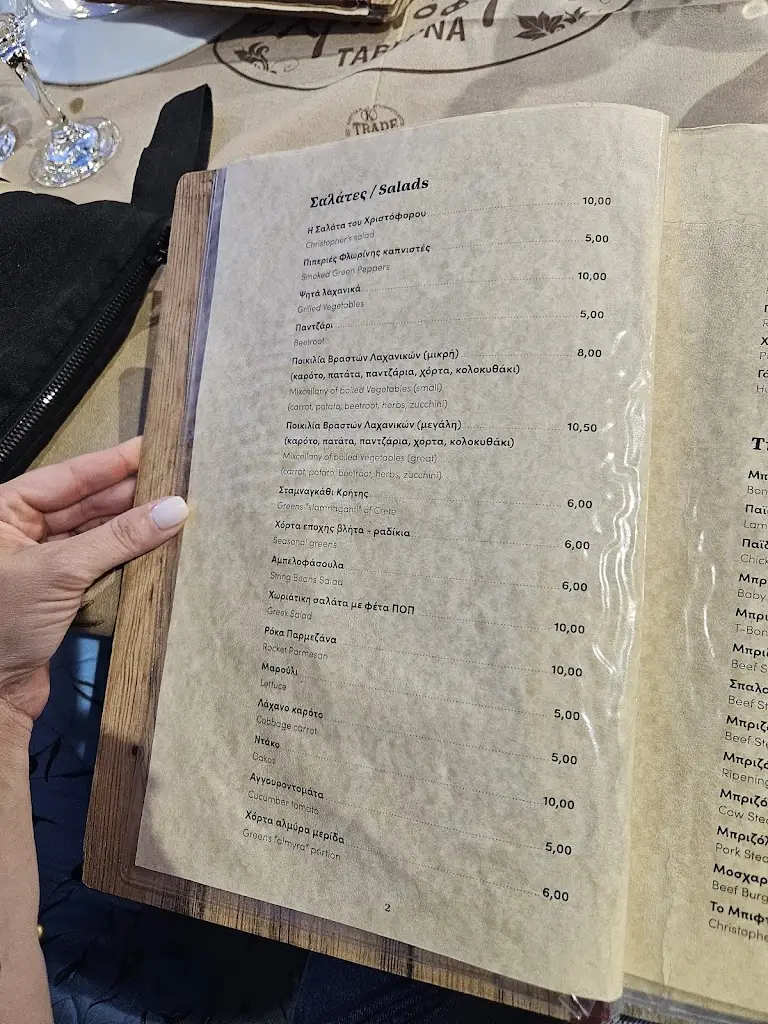 TRADE
Σαλάτες / Salads
Η Σαλάτα του Χριστόφορου 10,00
Christopher's salad
Πιπεριές Φλωρίνης καπνιστές 5,00
Smoked Green Peppers
Ψητά λαχανικά 10,00
Grilled Vegetables
Παντζάρι 5,00
Beetroot
Ποικιλία Βραστών Λαχανικών (μικρή) 8,00
(καρότο, πατάτα, παντζάρια, χόρτα, κολοκυθάκι)
Mixcellany of boiled Vegetables (small)
(carrot, potato, beetroot, herbs, zucchini)
Ποικιλία Βραστών Λαχανικών (μεγάλη) 10,50
(καρότο, πατάτα, παντζάρια, χόρτα, κολοκυθάκι)
Mixcellany of boiled Vegetables (great)
(carrot, potato, beetroot, herbs, zucchini)
Σταμναγκάθι Κρήτης 6,00
Greens "stamnagathi" of Crete
Χόρτα εποχης βλήτα - ραδίκια 6,00
Seasonal greens
Αμπελοφάσουλα 6,00
String Beans Salad
Χωριάτικη σαλάτα με φέτα ΠΟΠ 10,00
Greek Salad
Ρόκα Παρμεζάνα 10,00
Rocket Parmesan
Μαρούλι 5,00
Lettuce
Λάχανο καρότο 5,00
Cabbage carrot
Ντάκο 10,00
Dakos
Αγγουροντομάτα 5,00
Cucumber tomato
Χόρτα αλμύρα μερίδα 6,00
Greens "almyra" portion
2
Μπ
Bon
Παϊ
Lam
Παϊδ
Chick
Μπρι
Baby
Μπρι
T-Bon
Μπρι
Beef S
Σπαλο
Beef St
Μπριζ
Beef Ste
Μπριζό
Ripening
Μπριζό
Cow Stea
Μπριζόλ
Pork Stea
Μοσχαρ
Beef Burg
Το Μπιφτ
Christophe